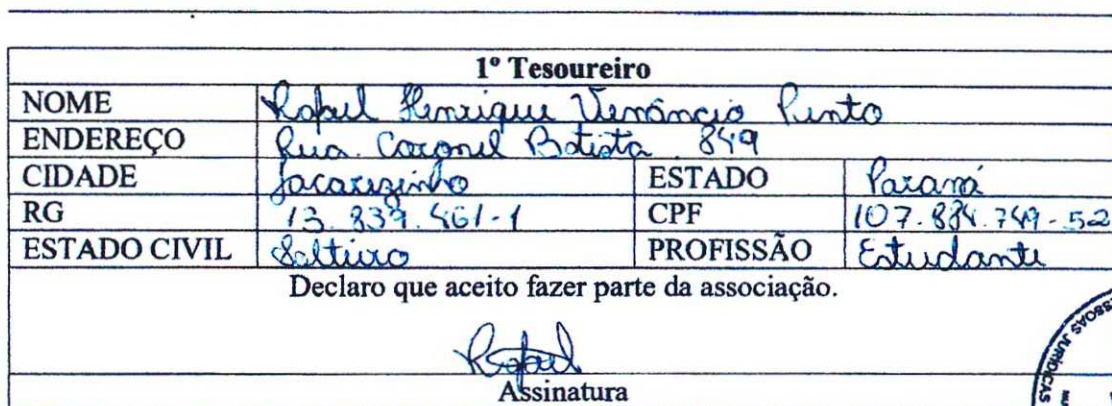 1º Tesoureiro
NOME Rafael Henrique Venâncio Pinto
ENDEREÇO Rua. Coronel Batista 849
CIDADE Jacarezinho ESTADO Paraná
RG 13.839.461-1 CPF 107.884.749-52
ESTADO CIVIL Solteiro PROFISSÃO Estudante
Declaro que aceito fazer parte da associação.
Rafael
Assinatura
JURÍDICAS